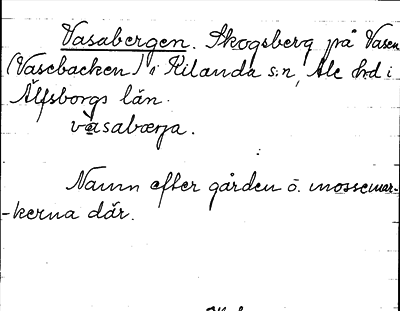 Vasabergen. Skogsberg på Vasen
(Vasebacken) i Kilanda s:n, Ale hrd i
Älfsborgs län.
vàsabærja.
Namn efter gården o. mossemar-
-kerna där.